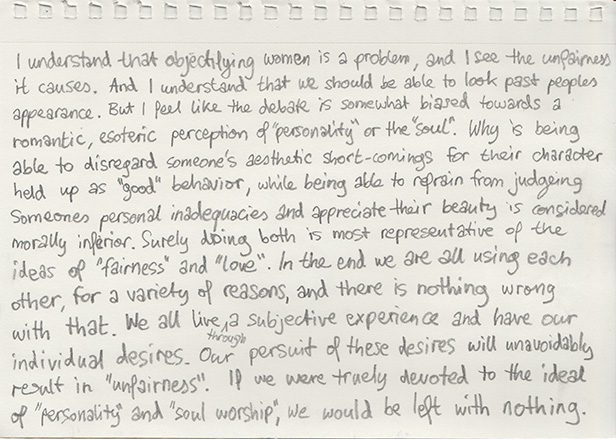 I understand that objectifying women is a problem, and I see the unfairness
it causes. And I understand that we should be able to look past peoples
appearance. But I feel like the debate is somewhat biased towards a
romantic, esoteric perception of "personality" or the "soul". Why is being
able to disregard someone's aesthetic short-comings for their character
held up as "good" behavior, while being able to refrain from judgeing
someones personal inadequacies and appreciate their beauty is considered
morally inferior. Surely doing both is most representative of the
ideas of "fairness" and "love". In the end we are all using each
other, for a variety of reasons, and there is nothing wrong
with that. We all live through a subjective experience and have our
individual desires. Our persuit of these desires will unavoidably
result in "unfairness". If we were truely devoted to the ideal
of "personality" and "soul worship", we would be left with nothing.